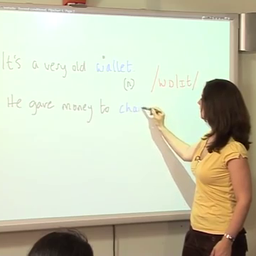 It's a very old wallet.
(n) /wɒlɪt/
He gave money to cha